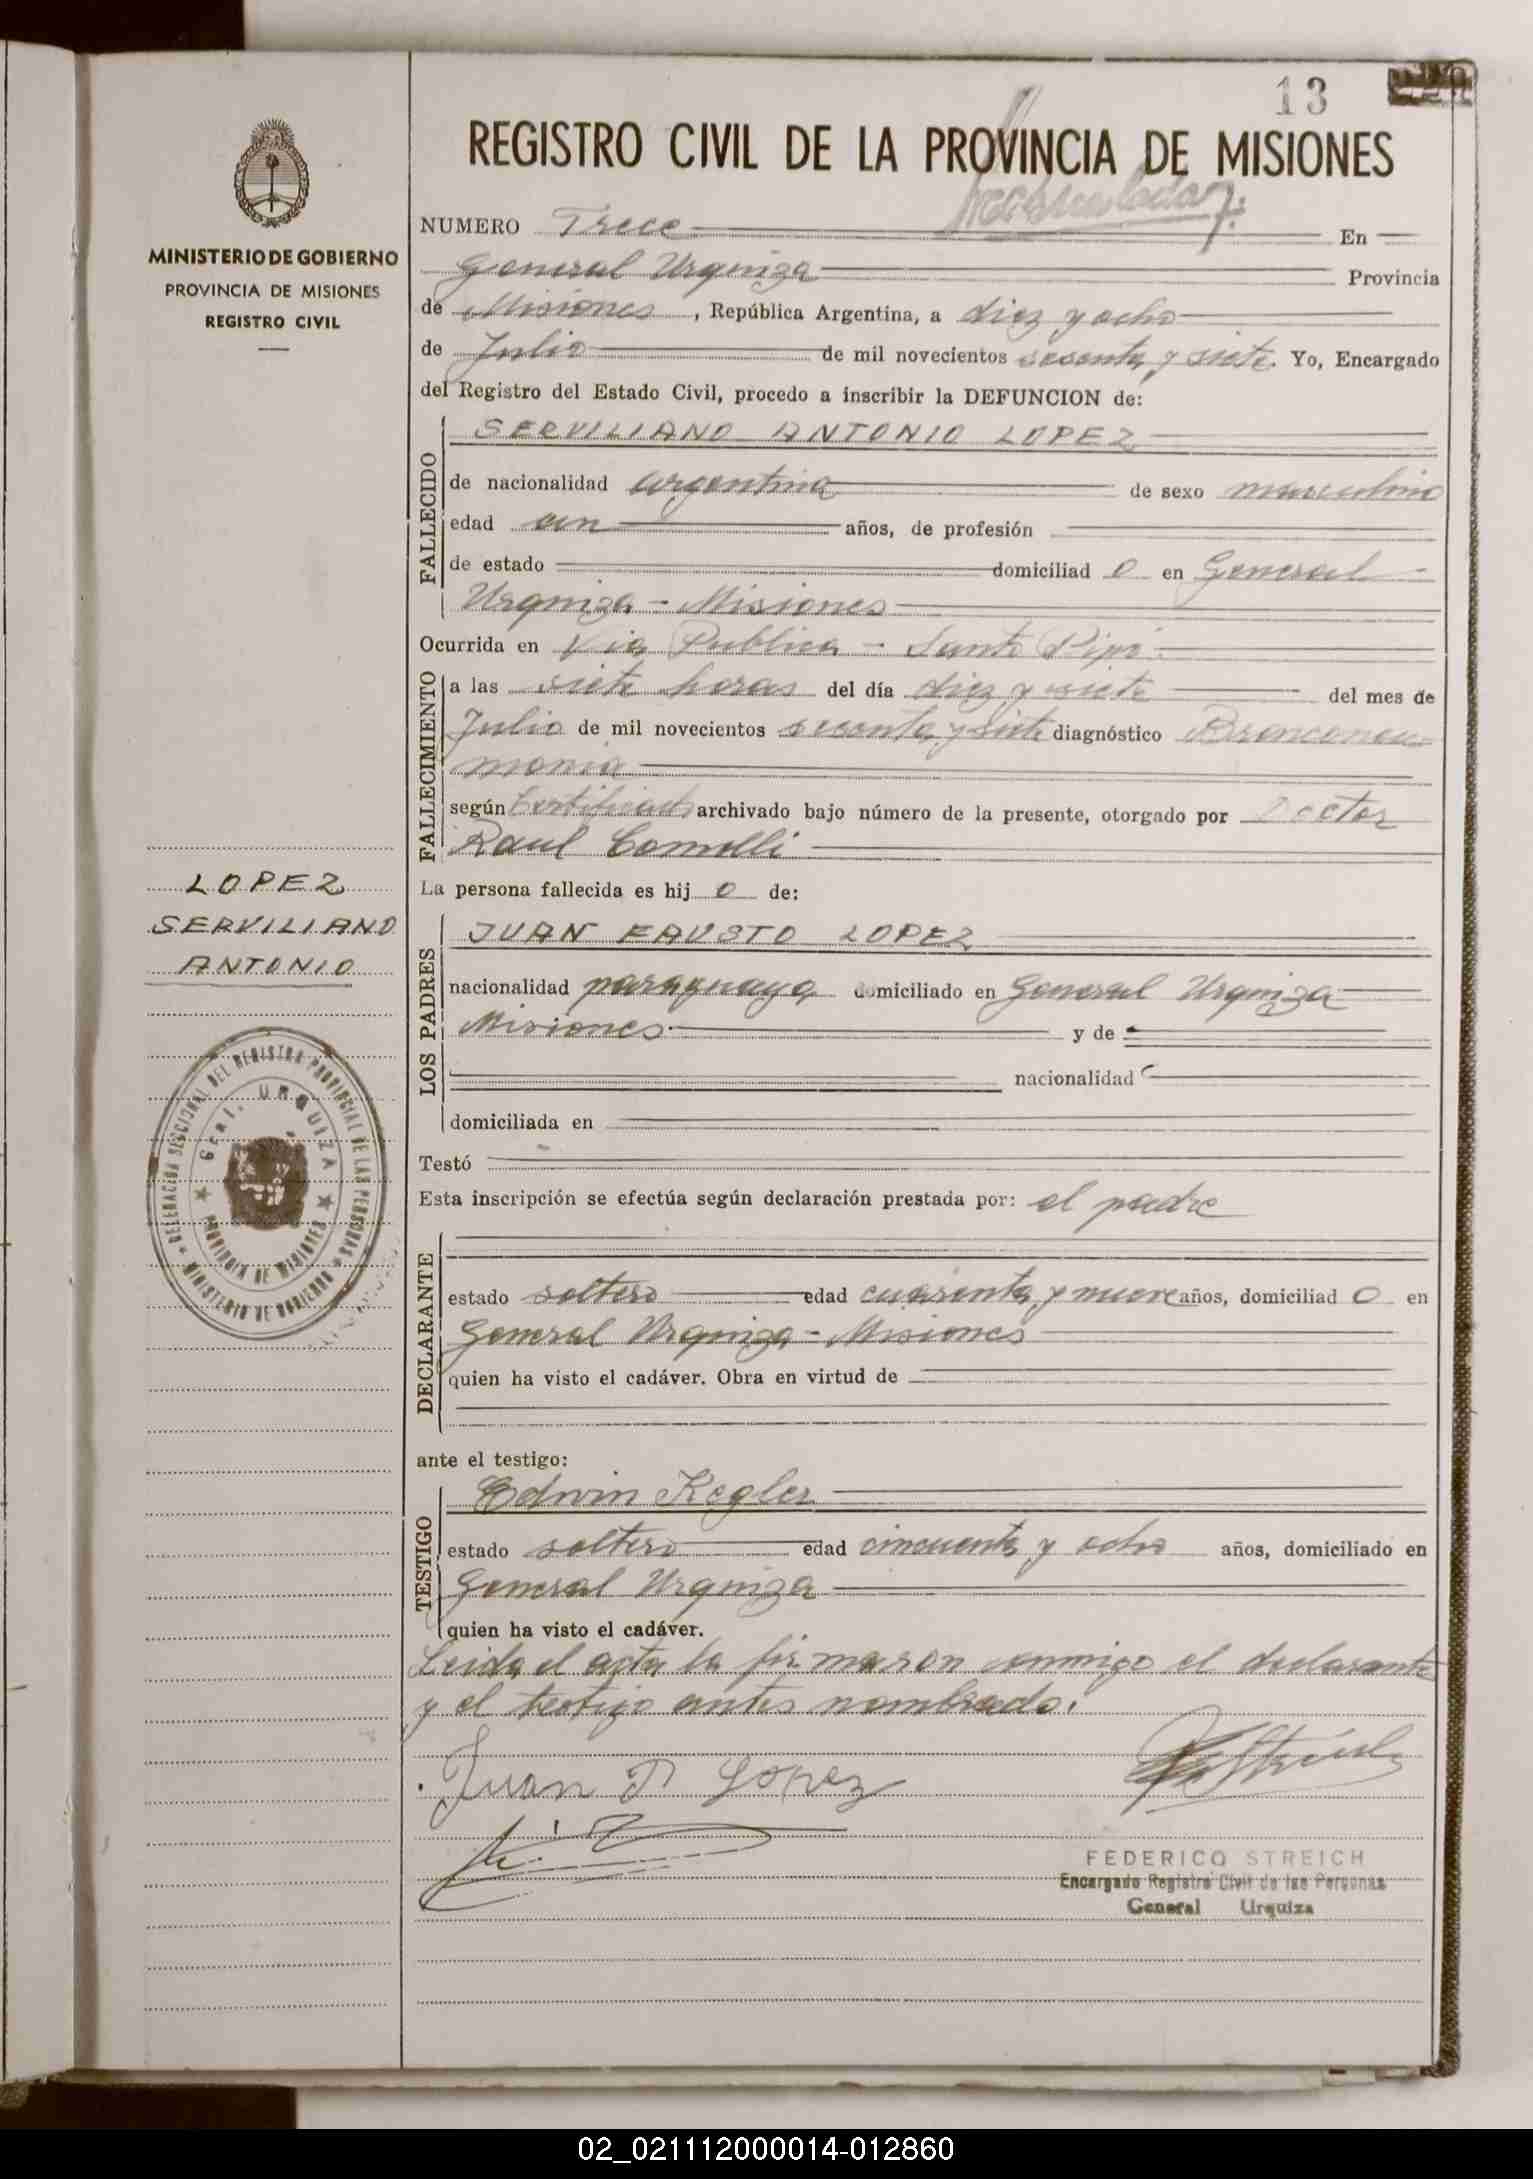 13
REGISTRO CIVIL DE LA PROVINCIA DE MISIONES
MINISTERIO DE GOBIERNO
PROVINCIA DE MISIONES
REGISTRO CIVIL
NUMERO Trece En
General Urquiza Provincia
de Misiones, República Argentina, a diez y ocho
de Julio de mil novecientos sesenta y siete. Yo, Encargado
del Registro del Estado Civil, procedo a inscribir la DEFUNCION de:
FALLECIDO
SERVILIANO ANTONIO LOPEZ
de nacionalidad argentina de sexo masculino
edad un años, de profesión
de estado domiciliad o en General
Urquiza - Misiones
Ocurrida en Via Publica - Santo Pipó
FALLECIMIENTO
a las siete horas del día diez y siete del mes de
Julio de mil novecientos sesenta y siete diagnóstico Bronconeu
monia
según Certificado archivado bajo número de la presente, otorgado por Doctor
Raul Comolli
La persona fallecida es hij o de:
LOPEZ
SERVILIANO
ANTONIO
LOS PADRES
JUAN FAUSTO LOPEZ
nacionalidad paraguaya domiciliado en General Urquiza
Misiones y de
nacionalidad
domiciliada en
DELEGACIÓN SECCIONAL DEL REGISTRO PROVINCIAL DE LAS PERSONAS
Gral. URQUIZA
PROVINCIA DE MISIONES
MINISTERIO DE GOBIERNO
Testó
Esta inscripción se efectúa según declaración prestada por: el padre
DECLARANTE
estado soltero edad cuarenta y nueve años, domiciliad o en
General Urquiza - Misiones
quien ha visto el cadáver. Obra en virtud de
ante el testigo:
TESTIGO
Edwin Kegler
estado soltero edad cincuenta y ocho años, domiciliado en
General Urquiza
quien ha visto el cadáver.
Leida el acta la firmaron conmigo el declarante
y el testigo antes nombrado.
Juan F Lopez
FEDERICO STREICH
Encargado Registro Civil de las Personas
General Urquiza
02_021112000014-012860